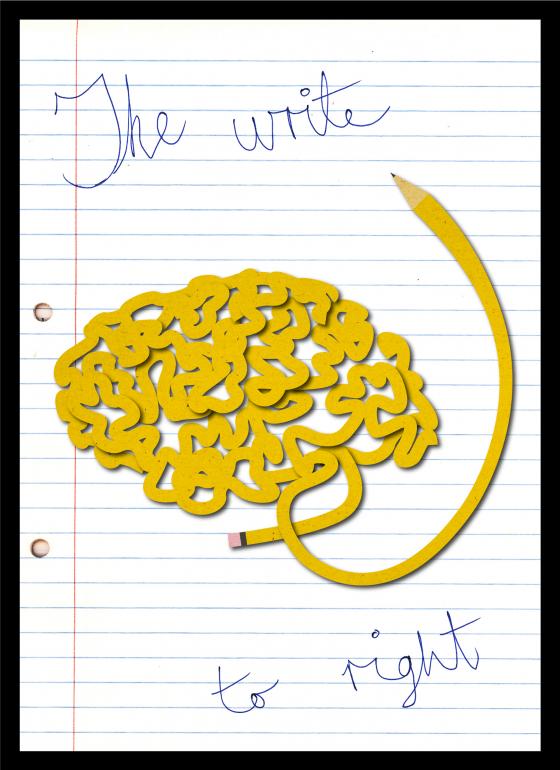 The write
to right